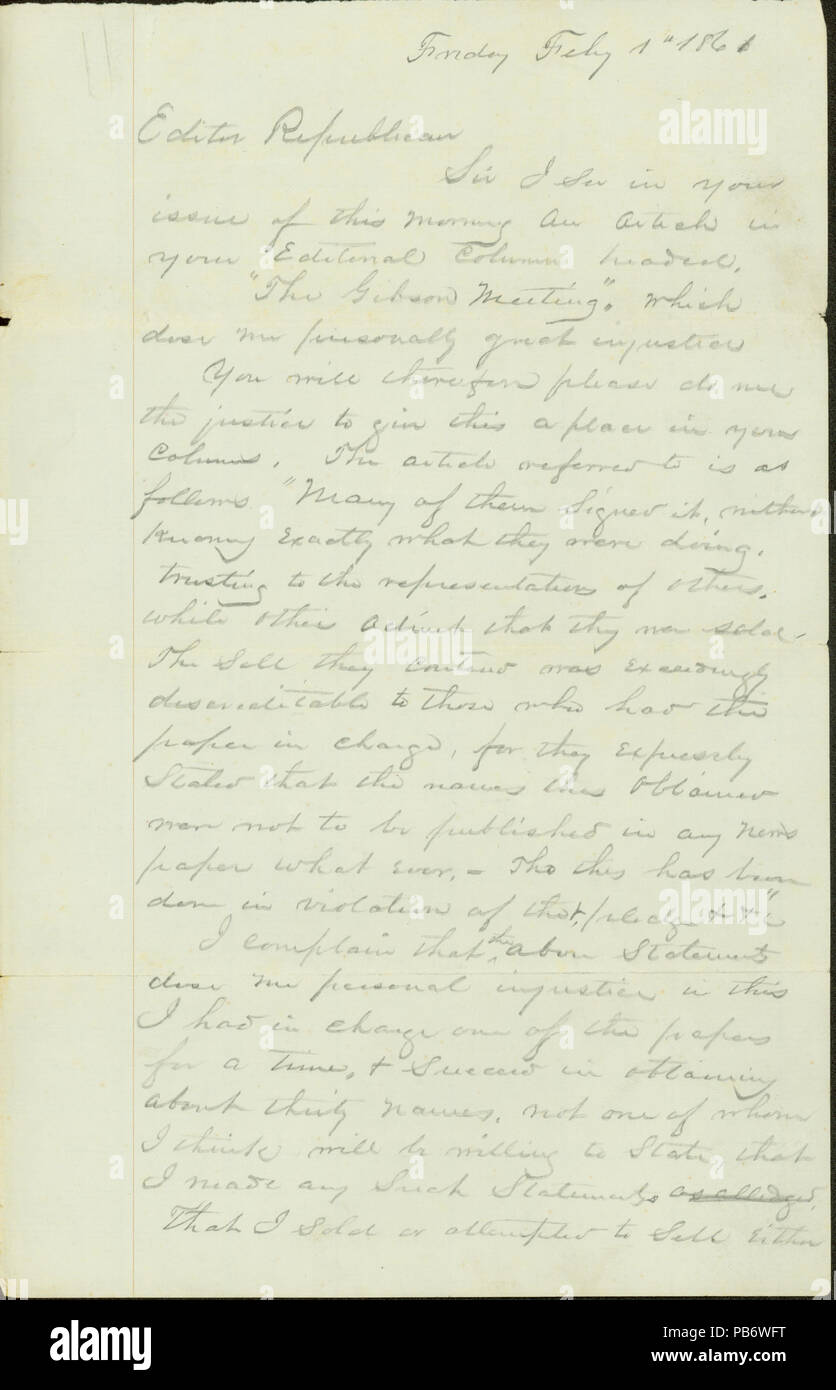 Friday Feby 1" 1861
Editor Republican
Sir I See in your
issue of this Morning An Article in
your Editorial Column headed.
"The Gibson Meeting". which
dose me personally great injustice
You will therefore please do me
the justice to give this a place in your
Columns. The article referred to is as
follows "Many of them Signed it, without
Knowing Exactly what they were doing.
trusting to the representations of others.
while other Admit that they were sold.
The Sell they contend was exceedingly
discreditable to those who had the
paper in charge, for they Expressly
Stated that the names thus Obtained
were not to be published in any News
paper what Ever. = Tho this has been
done in violation of that pledge & &c"
I complain that the above Statements
dose me personal injustice in this
I had in charge one of the papers
for a time, & Succeed in obtaining
about thirty Names, not one of whom
I think will be willing to State that
I made any Such Statements as alledged.
That I Sold or attempted to Sell Either
alamy
alamy
a
Image ID: PB6WFT
www.alamy.com